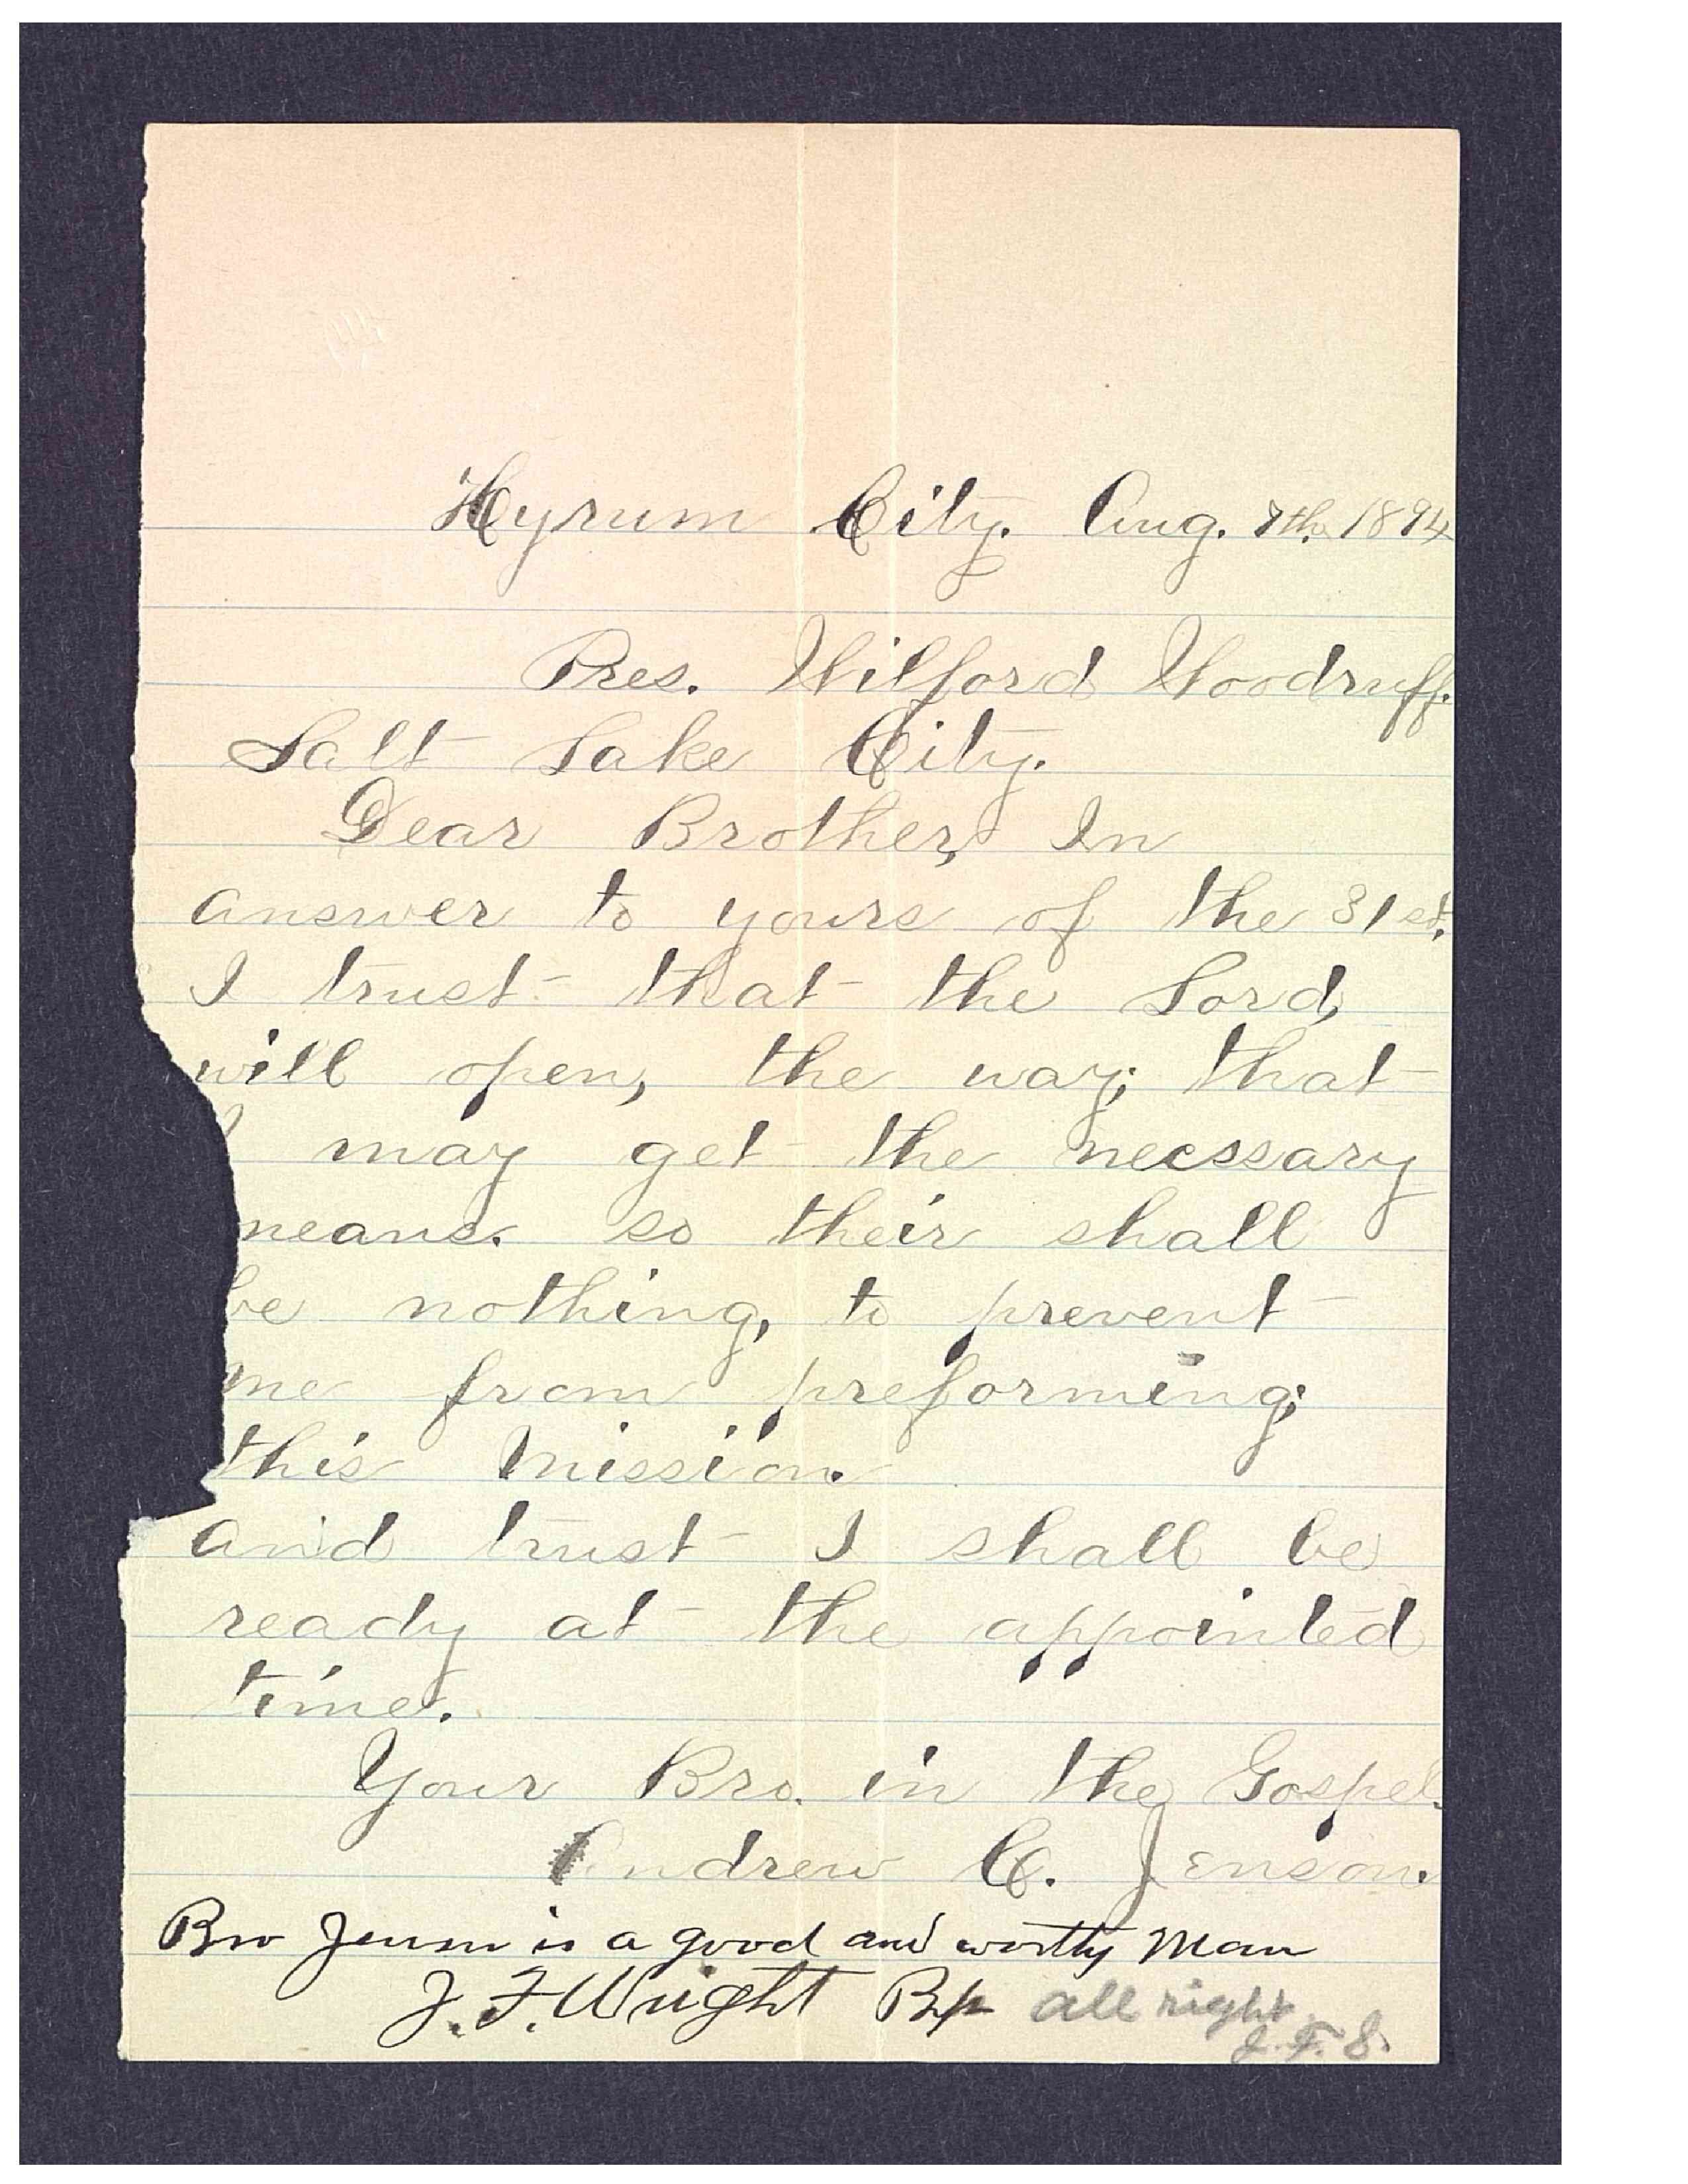 Hyrum City. Aug. 7th. 1894
Pres. Wilford Woodruff.
Salt Lake City.
Dear Brother, In
answer to yours of the 31st.
I trust that the Lord,
will open, the way; that
I may get the necssary
means. so their shall
be nothing, to prevent
me from preforming;
this Mission.
and trust I shall be
ready at the appointed
time.
Your Bro. in the Gospel.
Andrew C. Jenson.
Bro Jensen is a good and worthy Man
J. F. Wright Bp all right
J. F. S.